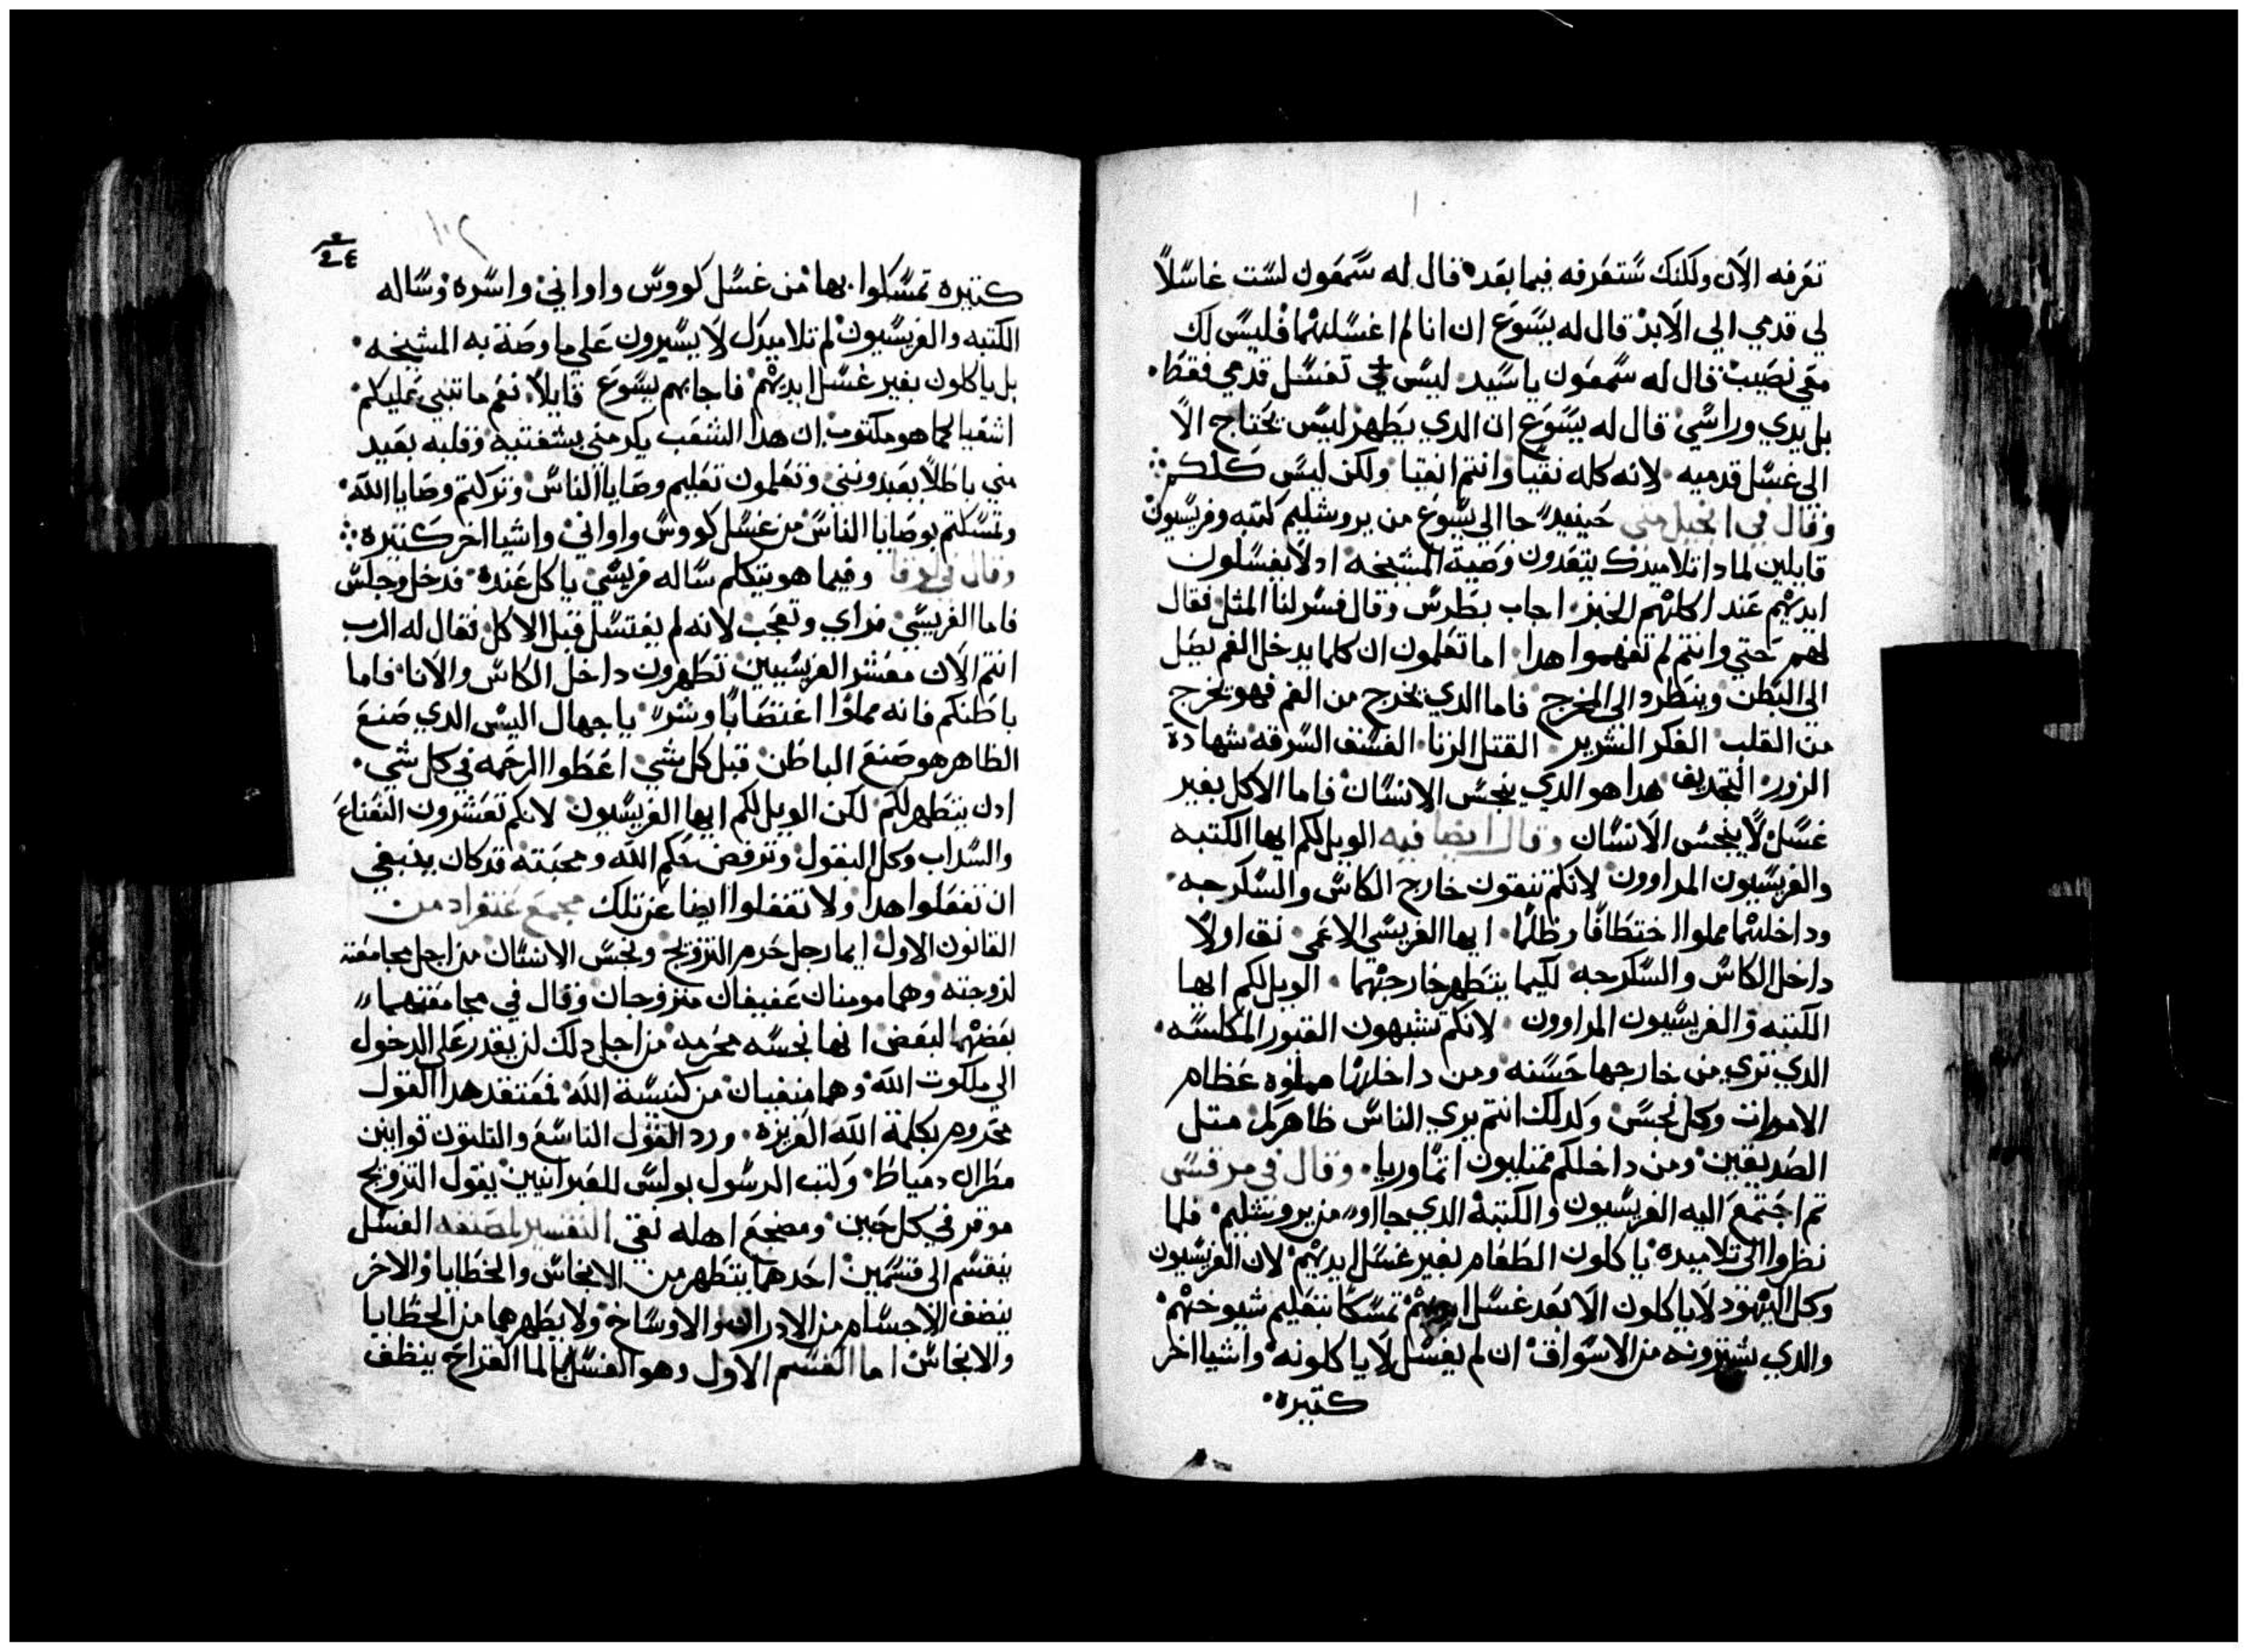 تعرفه الان ولكنك ستعرفه فيما بعد قال له سمعون لست غاسلاً
لي قدمي الي الابد قال له يسوع ان انا لم اغسلهما فليس لك
معي نصيب قال له سمعون يا سيد ليس تغسل قدمي فقط
بل يدي وراسي قال له يسوع ان الدي يطهر ليس يحتاج الا
الي غسل قدميه لانه كله نقيا وانتم انقيا ولكن ليس كلكم
وقال في انجيل متي حينيد جا الي يسوع من يروشليم كتبه وفريسيون
قايلين لمادا تلاميدك يتعدون وصية المشيخه اد لا يغسلون
ايديهم عند اكلهم الخبز اجاب بطرس وقال فسر لنا المثل فقال
لهم حتي وانتم لم تفهموا هدا اما تعلمون ان كلما يدخل الفم يصل
الي البطن وينطرد الي المخرج فاما الدي يخرج من الفم فهو يخرج
من القلب الفكر الشرير القتل الزنا الفسق السرقه شهادة
الزور التجديف هدا هو الدي ينجس الانسان فاما الاكل بغير
غسل لا ينجس الانسان وقال ايضا فيه الويل لكم ايها الكتبه
والفريسيون المراوون لانكم تنقون خارج الكاس والسكرجه
وداخلهما مملوا اختطافا وظلما ايها الفريسي الاعمي نق اولا
داخل الكاس والسكرجه لكيما يتطهر خارجهما الويل لكم ايها
الكتبه والفريسيون المراوون لانكم تشبهون القبور المكلسه
الدي تري من خارجها حسنه ومن داخلها مملوه عظام
الاموات وكل نجس وكدلك انتم يري الناس ظاهركم متل
الصديقين ومن داخلكم ممتليون اثما وريا وقال في مرقس
تم اجتمع اليه الفريسيون والكتبة الدي جااو من يروشليم فلما
نظروا الي تلاميده ياكلون الطعام بغير غسل ايديهم لان الفريسيون
وكل اليهود لا ياكلون الا بعد غسل ايديهم تمسكا بتعليم شيوخهم
والدي يشترونه من الاسواق ان لم يغسل لا ياكلونه واشيا اخر
كتيره
كتيره تمسكوا بها من غسل كووس واواني واسره وساله
الكتبه والفريسيون لم تلاميدك لا يسيرون علي ما وصة به المشيخه
بل ياكلون بغير غسل ايديهم فاجابهم يسوع قايلا نعم ما تنبي عليكم
اشعيا كما هو مكتوب ان هدا الشعب يكرمني بشفتيه وقلبه بعيد
مني باطلا يعبدونني وتعلمون تعليم وصايا الناس وتركتم وصايا الله
وتمسكتم بوصايا الناس من غسل كووس واواني واشيا اخر كتيره
وقال في لوقا وفيما هو يتكلم ساله فريسي ياكل عنده فدخل وجلس
فاما الفريسي فراي وتعجب لانه لم يغتسل قبل الاكل فقال له الرب
انتم الان معشر الفريسيين تطهرون داخل الكاس والانا فاما
باطنكم فانه مملوا اغتصابا وشر يا جهال اليس الدي صنع
الظاهر هو صنع الباطن قبل كل شي اعطوا الرحمه في كل شي
ادن يتطهر لكم لكن الويل لكم ايها الفريسيون لانكم تعشرون النعناع
والسداب وكل البقول وترفض حكم الله ومحبته قد كان ينبغي
ان تفعلوا هدا ولا تغفلوا ايضا عن تلك مجمع غنغرا د من
القانون الاول ايما رجل حرم التزويج ونجس الانسان من اجل مجامعته
لزوجته وهما مومنان عفيفان متزوجان وقال في مجامعتهما
بعضهما لبعض انها نجسه محرمه من اجل دلك لن يقدر علي الدخول
الي ملكوت الله وهما منفيان من كنيسة الله فمعتقد هدا القول
محروم بكلمة الله العزيزه ورد القول التاسع والتلتون قوانين
مطران دمياط وكتب الرسول بولس للعبرانيين يقول التزويج
موقر في كل حين ومضجع اهله نقي التفسير لمصنفه الغسل
ينقسم الي قسمين احدهما يتطهر من الانجاس والخطايا والاخر
ينضف الاجسام من الادران والاوساخ ولا يطهرهما من الخطايا
والانجاس اما القسم الاول وهو الغسل بالما القراح ينظف